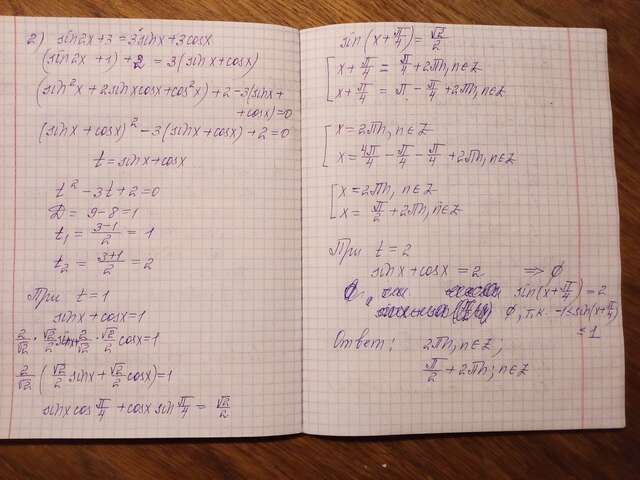 2) sin2x+3 = 3sinx+3cosx
(sin2x+1)+2 = 3(sinx+cosx)
(sin²x+2sinxcosx+cos²x)+2-3(sinx+
+cosx)=0
(sinx+cosx)²-3(sinx+cosx)+2=0
t=sinx+cosx
t²-3t+2=0
D=9-8=1
t₁=(3-1)/2=1
t₂=(3+1)/2=2
При t=1
sinx+cosx=1
2/√2·√2/2 sinx+2/√2·√2/2 cosx=1
2/√2(√2/2 sinx+√2/2 cosx)=1
sinxcos π/4+cosxsin π/4=√2/2
sin(x+π/4)=√2/2
[x+π/4=π/4+2πn, n∈Z
x+π/4=π-π/4+2πn, n∈Z
[x=2πn, n∈Z
x=4π/4-π/4-π/4+2πn, n∈Z
[x=2πn, n∈Z
x=π/2+2πn, n∈Z
При t=2
sinx+cosx=2 ⇒ ∅
sin(x+π/4)=2
∅, т.к. -1≤sin(x+π/4)
≤1
Ответ: 2πn, n∈Z;
π/2+2πn; n∈Z